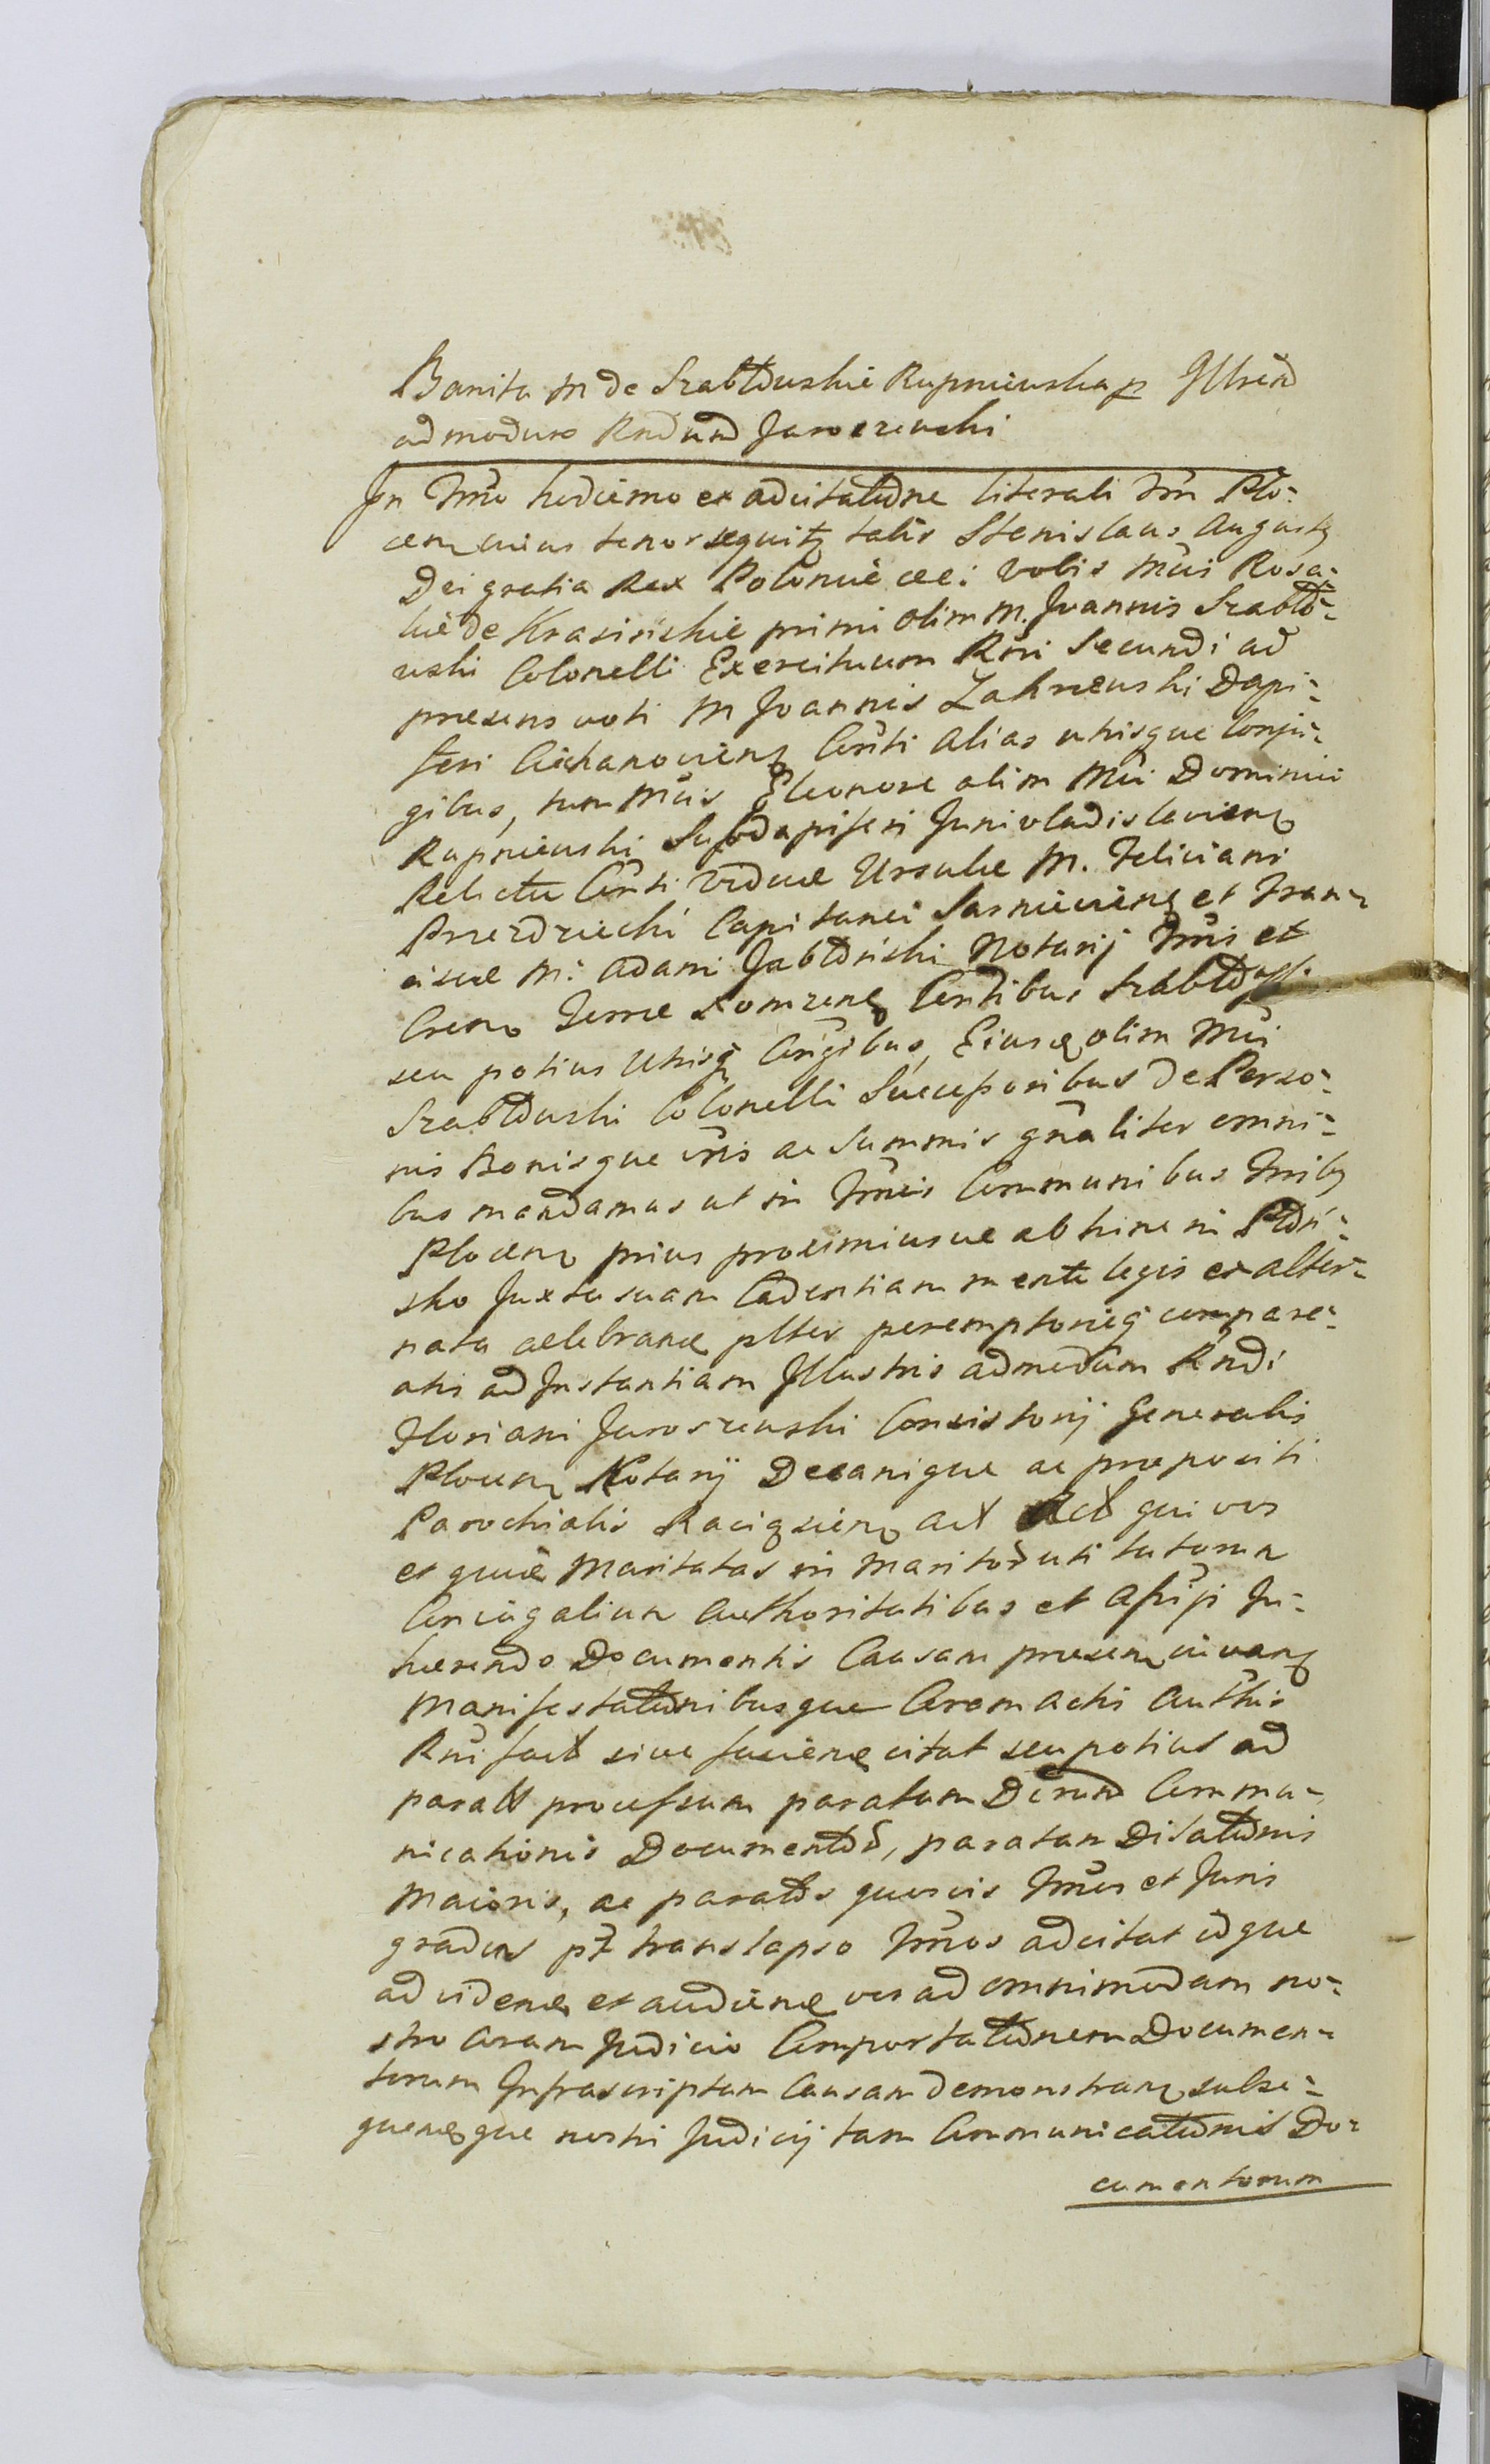 Banita M de Szabłowskie Rupniewska p Illrem
admodum Rndum Jaroszewski
In Tmno hodierno ex adcitatione literali Trm Plo-
cen cuius tenor sequitq talis Stanislaus Augustq
Dei gratia Rex Poloniæ &c: Vobis Mcis Rosa-
liæ de Krasinskie primi olim M. Joannis Szabło-
wski Colonelli Exercituum Rni Secundi ad
præsens voti M Joannis Zakrzewski Dapi-
feri Ciechanovien Consti alias utrisque Conju-
gibus, tum Mcis Eleonoræ olim Mci Dominici
Rupniewski Subdapiferi Junivladislavien
Relictæ Consti Viduæ Ursulæ M. Feliciani
Przezdziecki Capitanei Sarnicien et Fran-
ciscæ M: Adami Jabłonski Notarij Tmis et
Cren Terræ Łomzen Contibus Szabłows
seu potius Utrisq Congibus, Eiusq olim Mci
Szabłowski Colonelli Successoribus de Perso-
nis Bonisque vris ac Summis gnaliter omni-
bus mandamus ut in Tmis Communibus Trribq
Plocen prius proximiusve abhinc in Płoń-
sko Juxta suam Cadentiam mente legis ex alter-
nata celebran pltter peremptorieq compare-
atis ad Instantiam Illustris admodum Rndi
Floriani Jaroszewski Consistorij Generalis
Plocen Notarij Decanique ac præpositi
Parochialis Raciązien act Act qui vos
et quæ Maritatas in Maritor uti tutorum
Conjugalium Authoritatibus et assisi In-
hærendo Documentis Causam præsen iuvan
Manifestationibusque Coram Actis Authis
Rni fact sive facien citat seu potius ad
parat processum paratam Dcrum Commu-
nicationis Documentor, paratam Dilationis
Maioris, ac paratos quosvis Tmis et Juris
gradus pt translapso Tmos adcitat idque
ad viden et audien vos ad omnimodam no-
stro Coram Judicio Comportationem Documen-
torum Infrascriptam Causam demonstran subse-
quenque nostri Judicij tam Communicationis Do-
cumentorum